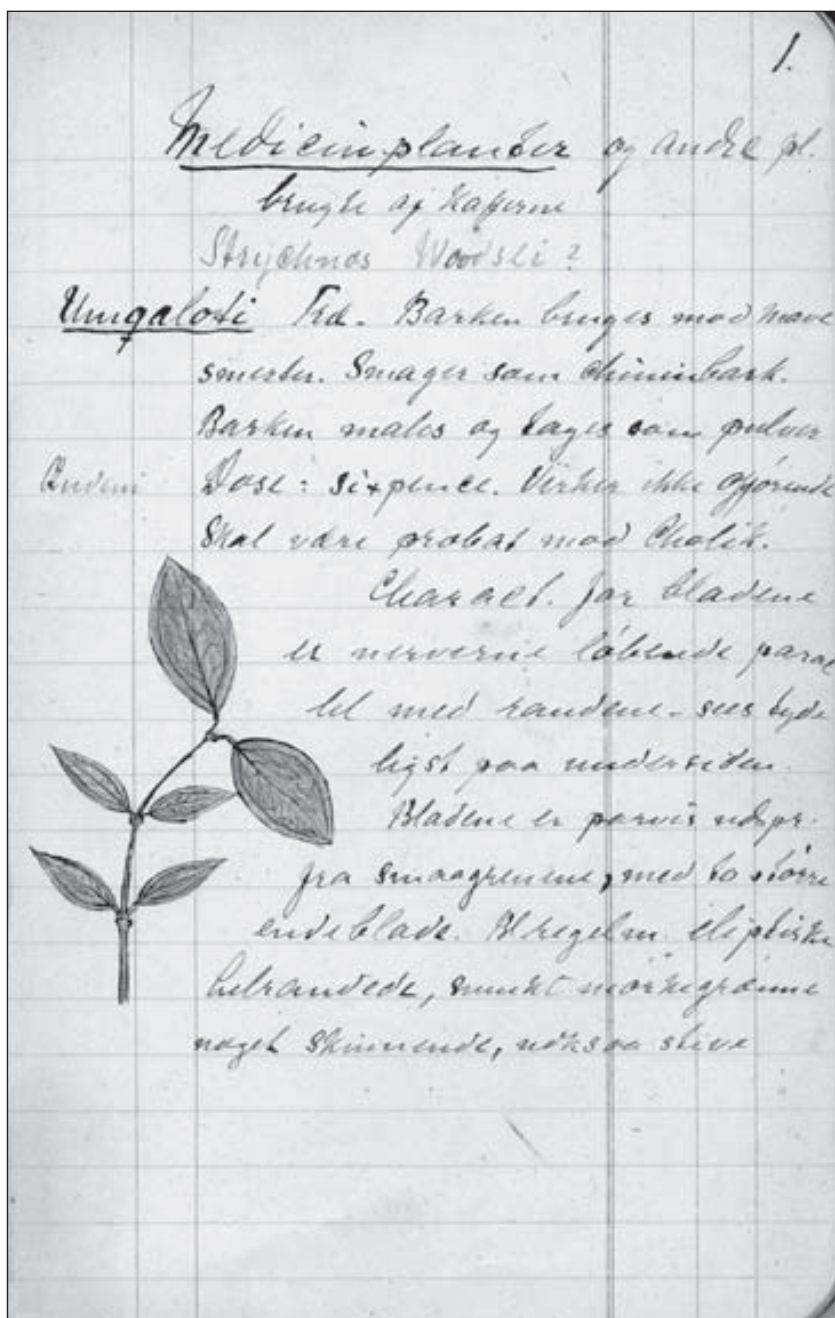 1.
Medicinplanter og andre pl.
brugte af Kafferne
Strychnos Woodsei ?
Umqaloti Træ. Barken bruges mod mave
smerter. Smager som Chininbark.
Barken males og tages som pulver
Dose: sixpence. Virker ikke afførende
Skal være probat mod Cholik.
Charact. for bladene
er nerverne løbende paral
lel med randene - sees tyde
ligst paa undersiden.
Bladene er parvis udspr.
fra smaagrenene, med to større
endeblade. Uregelm. eliptiske
helrandede, smukt mørkegrønne
noget skinnende, ogsaa stive